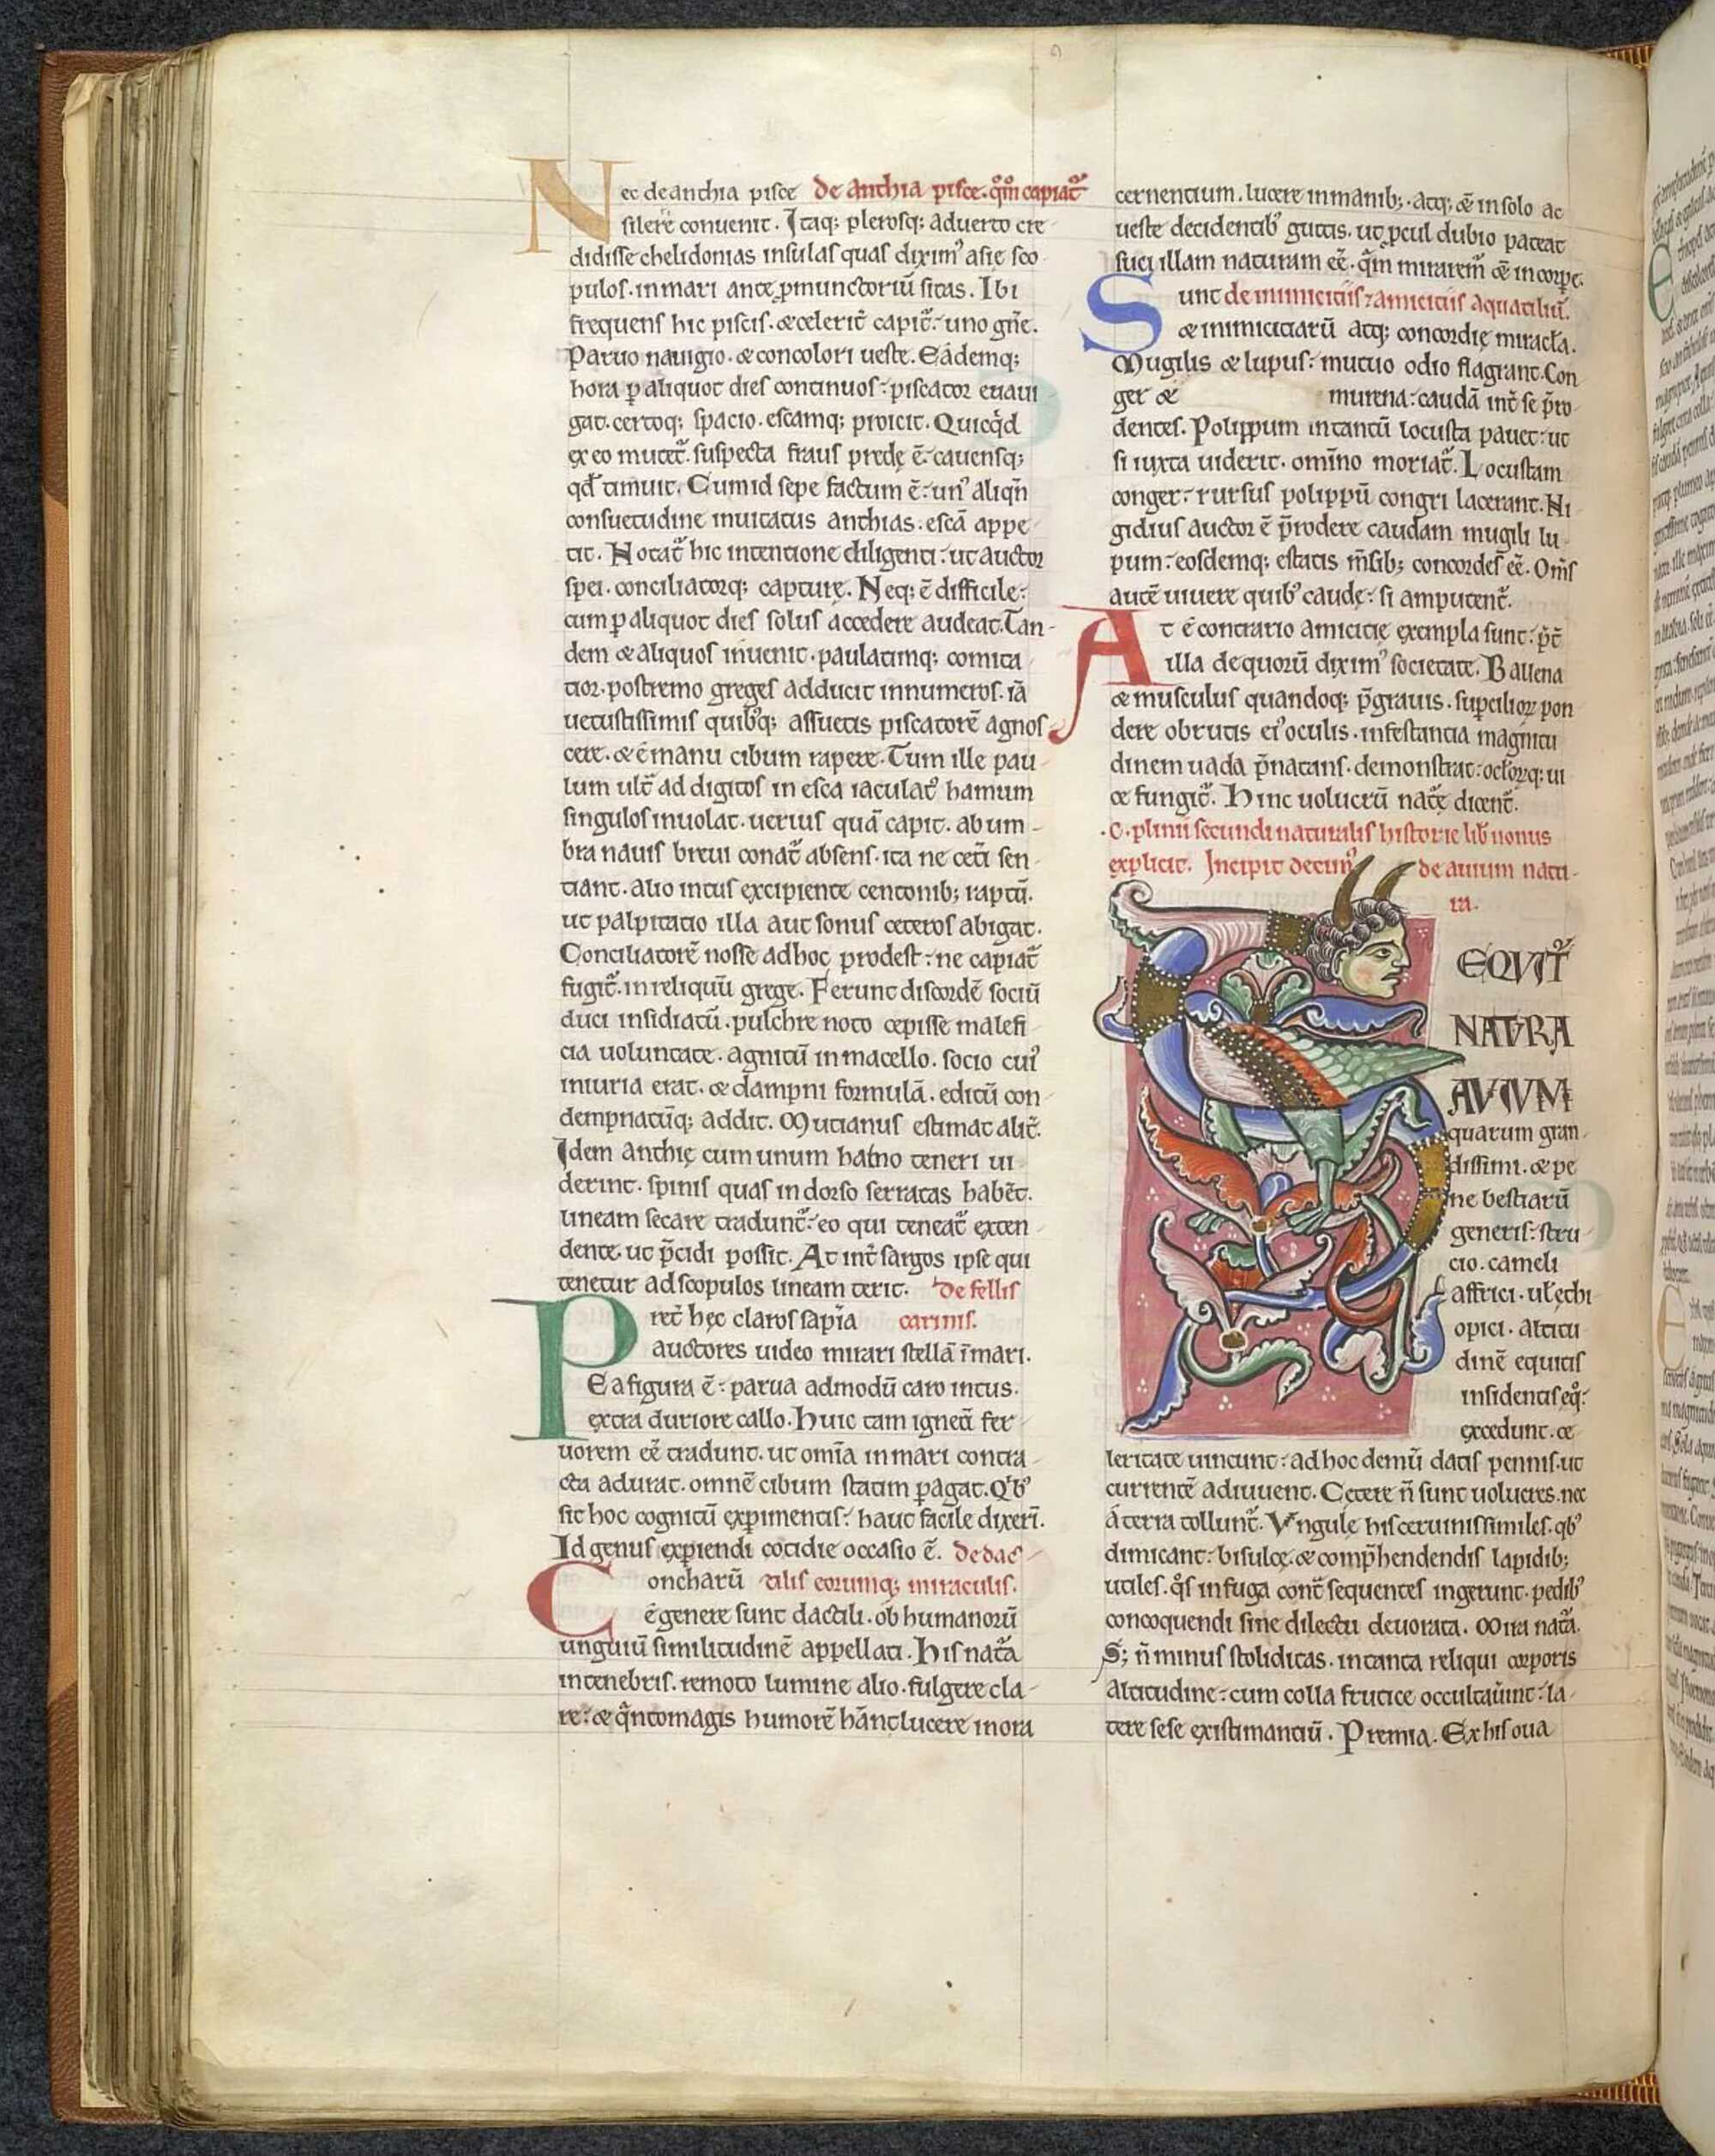 Nec de anthia pisce de anthia pisce. qm̄ capiat᷑
silere convenit. Itaq; plerosq; aduerto cre
didisse chelidonias insulas quas diximꝰ asie sco
pulos. in mari ante ꝓmunctoriū sitas. Ibi
frequens hic piscis. & celerit᷑ capit᷑. uno gn̄e.
Paruo nauigio. & concolori ueste. Eademq;
hora ꝑ aliquot dies continuos. piscator euaui
gat. certoq; spacio. escamq; proicit. Quicq̇d
ex eo mutet᷑. suspecta fraus prede ē. cauensq;
qđ timuit. Cum id sepe factum ē. unꝰ aliqn̄
consuetudine inuitatus anthias. escā appe
tit. Notat᷑ hic intentione diligenti. ut auctor
spei. conciliatorq; capture. Neq; ē difficile.
cum ꝑ aliquot dies solus accedere audeat. Tan
dem & aliquos inuenit. paulatimq; comita
tior. postremo greges adducit innumeros. iā
uetustissimis quibꝰq; assuetis piscatorē agnos
cere. & ē manu cibum rapere. Tum ille pau
lum ult᷑ ad digitos in esca iaculatꝰ hamum
singulos inuolat. uerius quā capit. ab um
bra nauis breui conat᷑ absens. ita ne cet̄i sen
tiant. alio intus excipiente centonib; raptū.
ut palpitatio illa aut sonus ceteros abigat.
Conciliatorē nosse ad hoc prodest. ne capiat᷑
fugit᷑. in reliquū grege. Ferunt discordē sociū
duci insidiatū. pulchre noto cepisse malefi
cia uoluntate. agnitū in macello. socio cuiꝰ
iniuria erat. & dampni formulā. editū con
dempnatūq; addit. Mucianus estimat alit᷑.
Idem anthię cum unum hamo teneri ui
derint. spinis quas in dorso serratas habēt.
lineam secare tradunt᷑. eo qui teneat᷑ exten
dente. ut p̄cidi possit. At int᷑ sargos ipse qui
tenetur ad scopulos lineam terit. de stellis
Pret᷑ hęc claros sapīa marinis.
auctores uideo mirari stellā ī mari.
Ea figura ē. parua admodū caro intus.
extra duriore callo. Huic tam igneū fer
uorem eē tradunt. ut omīa in mari conta
cta adurat. omnē cibum statim ꝑagat. Qⁱbꝰ
sit hoc cognitū exꝑimentis. haut facile dixerī.
Id genus exꝑiendi cotidie occasio ē. de dac
Concharū tilis eorumq; miraculis.
ē genere sunt dactili. ob humanorū
unguiū similitudinē appellati. His nat᷑a
in tenebris. remoto lumine alio. fulgere cla
re. & q̄nto magis humorē hānt lucere in ora
cernentium. lucere in manib;. atq; & in solo ac
ueste decidentibꝰ guttis. ut ꝓcul dubio pateat
suci illam naturam eē. qm̄ miraremꝰ & in corꝑe.
Sunt de inimicitiis ⁊ amicitiis aquatiliū.
& inimicitiarū atq; concordię miracła.
Mugilis & lupus. mutuo odio flagrant. Con
ger & murena. caudā int᷑ se p̄ro
dentes. Polippum in tantū locusta pauet. ut
si iuxta uiderit. omīno moriat᷑. Locustam
conger. rursus polippū congri lacerant. Ni
gidius auctor ē p̄rodere caudam mugili lu
pum. eosdemq; estatis m̄sib; concordes eē. Om̄s
autē uiuere quibꝰ caudę. si amputent᷑.
At ē contrario amicitię exempla sunt. p̄t᷑
illa de quorū diximꝰ societate. Ballena
& musculus quandoq; p̄grauis. suꝑciliorꝫ pon
dere obrutis eiꝰ oculis. infestantia magnitu
dinem uada p̄natans. demonstrat. oclorꝫq; ui
ce fungit᷑. Hinc uolucrū nat᷑ę dicent᷑.
.C. plinii secundi naturalis historie lib̄ nonus
explicit. Incipit decimꝰ de auium natu
ra.
EQVIT᷑
NATVRA
AVIVM
quarum gran
dissimi. & pe
ne bestiarū
generis. stru
cio. cameli
affrici. uł ęthi
opici. altitu
dinē equitis
insidentis eq̊.
excedunt. ce
leritate uincunt. ad hoc demū datis pennis. ut
currentē adiuuent. Cetere n̄ sunt uolucres. nec
á terra tollunt᷑. Vngule his ceruinis similes. qbꝰ
dimicant. bisulcę. & comp̄hendendis lapidib;
utiles. q̊s in fuga cont᷑ sequentes ingerunt. pedibꝰ
concoquendi sine dilectu deuorata. Mira nat᷑a.
S; n̄ minus stoliditas. in tanta reliqui corporis
altitudine. cum colla frutice occultauint. la
tere sese existimantiū. Premia. Ex his oua